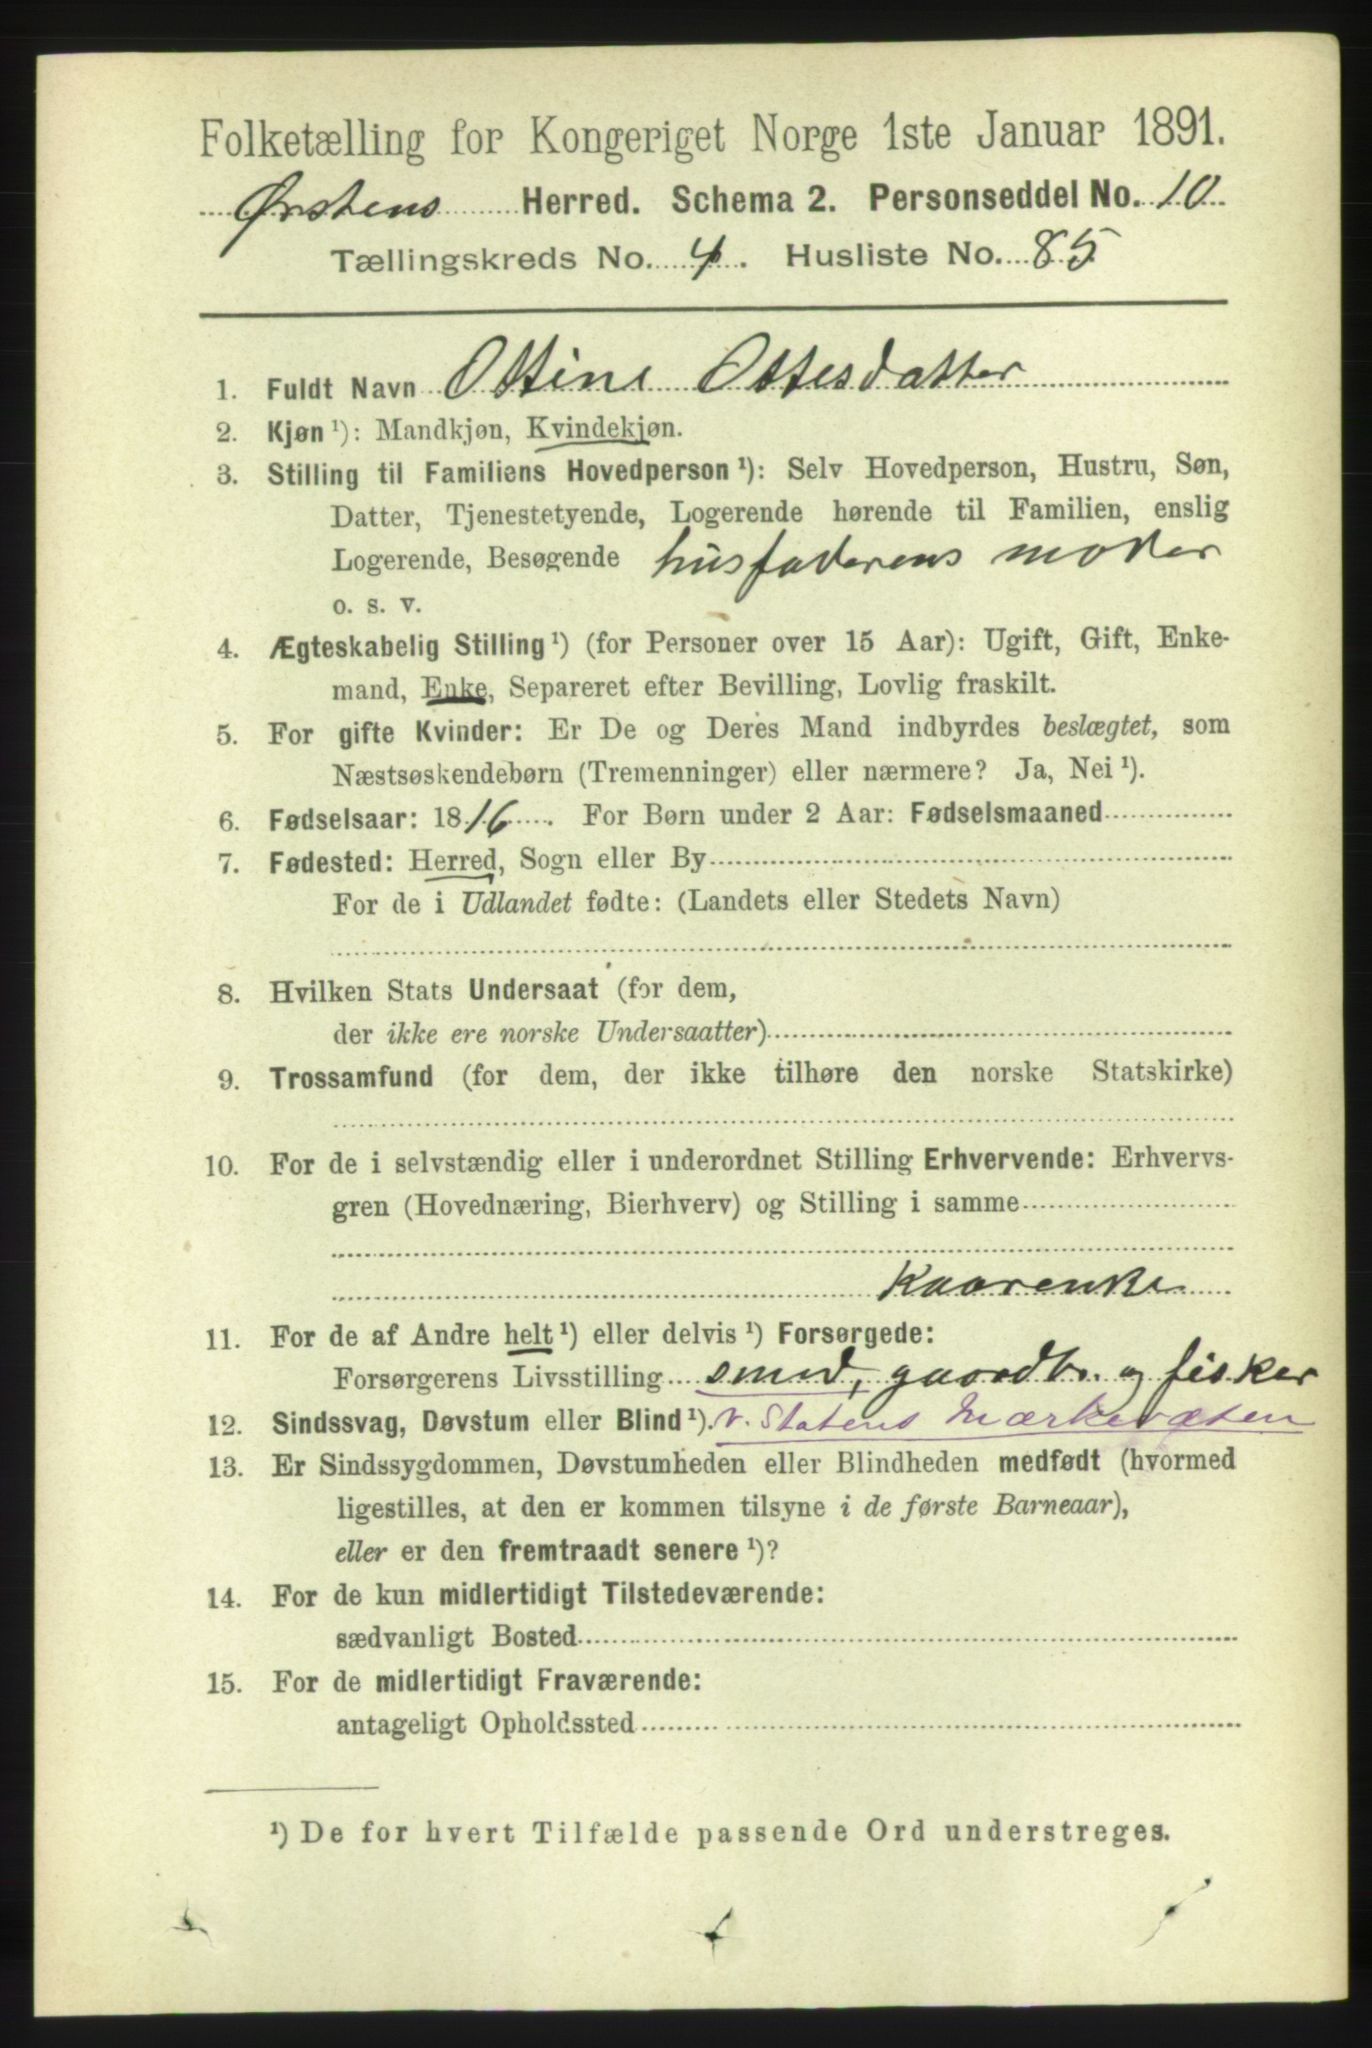 Folketælling for Kongeriget Norge 1ste Januar 1891.
Ørstens Herred. Schema 2. Personseddel No. 10
Tællingskreds No. 4. Husliste No. 85
1. Fuldt Navn Ottine Ottesdatter
2. Kjøn ¹): Mandkjøn, Kvindekjøn.
3. Stilling til Familiens Hovedperson ¹): Selv Hovedperson, Hustru, Søn,
Datter, Tjenestetyende, Logerende hørende til Familien, enslig
Logerende, Besøgende husfaderens moder
o. s. v.
4. Ægteskabelig Stilling ¹) (for Personer over 15 Aar): Ugift, Gift, Enke-
mand, Enke, Separeret efter Bevilling, Lovlig fraskilt.
5. For gifte Kvinder: Er De og Deres Mand indbyrdes beslægtet, som
Næstsøskendebørn (Tremenninger) eller nærmere? Ja, Nei ¹).
6. Fødselsaar: 1816. For Børn under 2 Aar: Fødselsmaaned
7. Fødested: Herred, Sogn eller By
For de i Udlandet fødte: (Landets eller Stedets Navn)
8. Hvilken Stats Undersaat (for dem,
der ikke ere norske Undersaatter)
9. Trossamfund (for dem, der ikke tilhøre den norske Statskirke)
10. For de i selvstændig eller i underordnet Stilling Erhvervende: Erhvervs-
gren (Hovednæring, Bierhverv) og Stilling i samme
Kaarenke
11. For de af Andre helt ¹) eller delvis ¹) Forsørgede:
Forsørgerens Livsstilling smed, gaardbr. og fisker
12. Sindssvag, Døvstum eller Blind ¹). v. Statens Mærkevæsen
13. Er Sindssygdommen, Døvstumheden eller Blindheden medfødt (hvormed
ligestilles, at den er kommen tilsyne i de første Barneaar),
eller er den fremtraadt senere ¹)?
14. For de kun midlertidigt Tilstedeværende:
sædvanligt Bosted
15. For de midlertidigt Fraværende:
antageligt Opholdssted
¹) De for hvert Tilfælde passende Ord understreges.